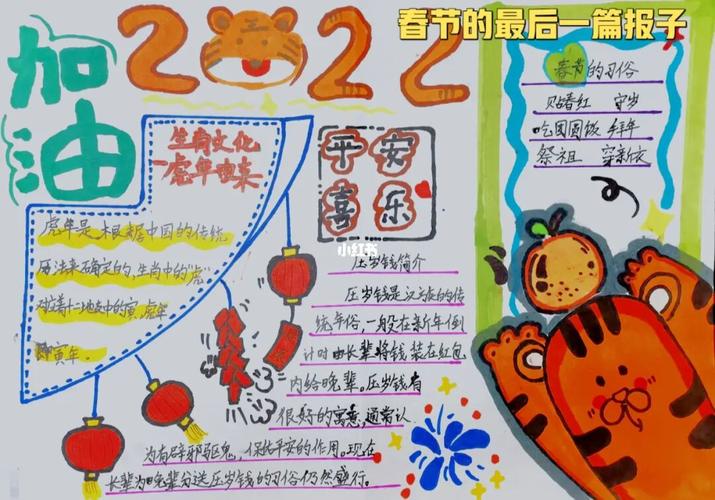 春节的最后一篇报子
加油
2022
生肖文化
虎年由来
虎年是根据中国的传统
历法来确定的,生肖中的"虎"
对应着十二地支中的寅,虎年
即寅年.
平安
喜乐
小红书
压岁钱简介
压岁钱是汉族的传
统年俗,一般在新年倒
计时由长辈将钱装在红包
内给晚辈.压岁钱有
很好的寓意,通常认
为有辟邪驱鬼,保佑平安的作用.现在
长辈为晚辈分送压岁钱的习俗仍然盛行.
春节的习俗
贴春红 守岁
吃团圆饭 拜年
祭祖 穿新衣